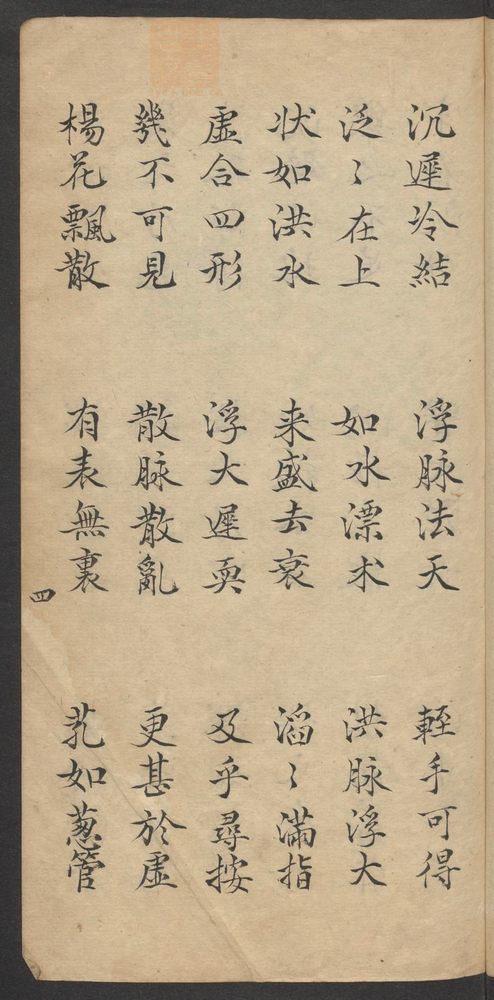 沉遲冷結 浮脉法天 輕手可得
泛〻在上 如水漂木 洪脉浮大
状如洪水 来盛去衰 滔〻滿指
虚合四形 浮大遲耎 及乎尋按
幾不可見 散脉散亂 更甚於虚
楊花飄散 有表無裏 芤如葱管
四